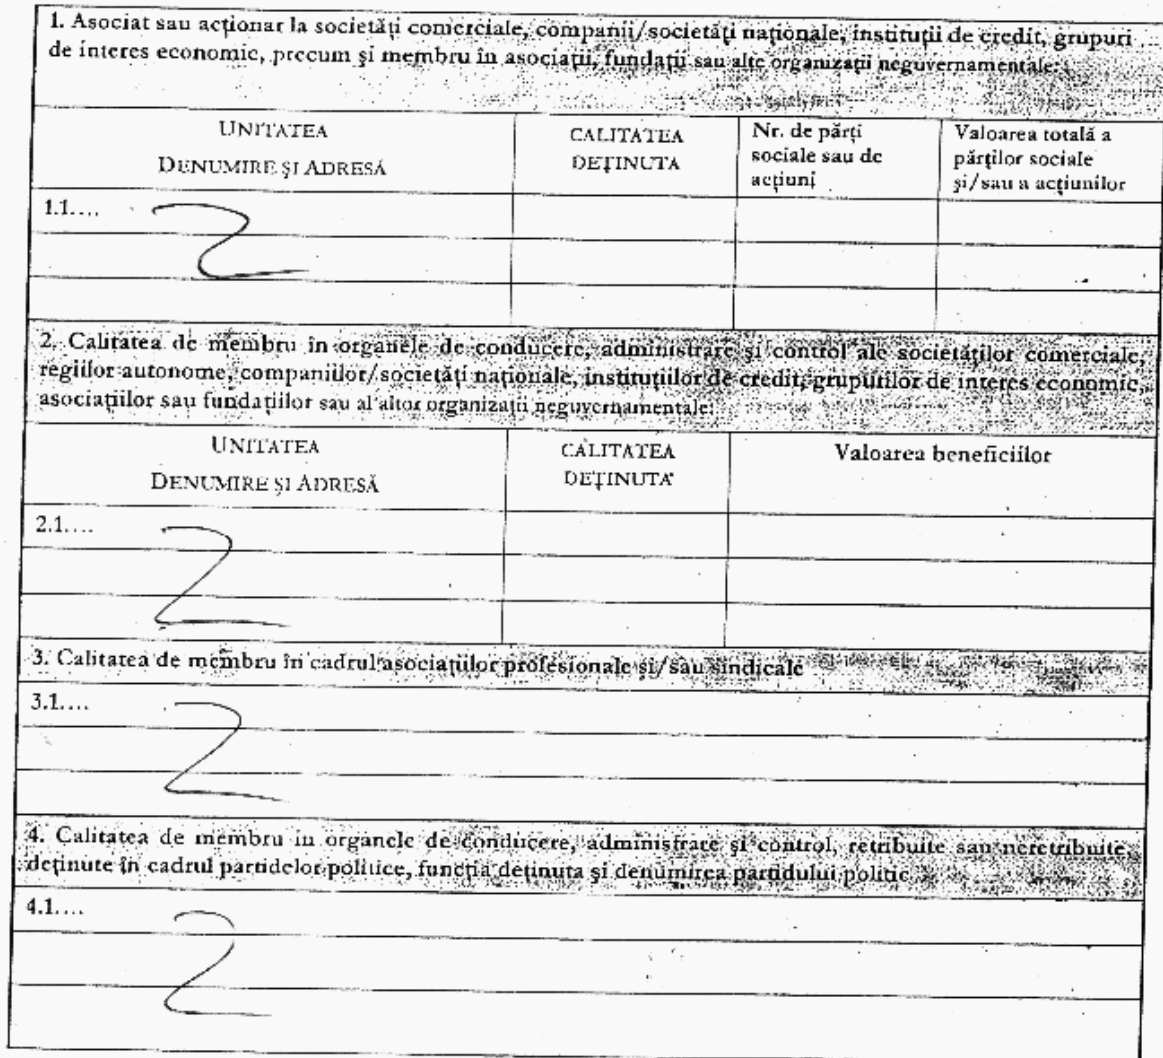 1. Asociat sau acționar la societăți comerciale, companii/societăți naționale, instituții de credit, grupuri
de interes economic, precum și membru în asociații, fundații sau alte organizații neguvernamentale:
UNITATEA
DENUMIRE ȘI ADRESĂ
CALITATEA
DEȚINUTA
Nr. de părți
sociale sau de
acțiuni
Valoarea totală a
părților sociale
și/sau a acțiunilor
1.1....
2. Calitatea de membru în organele de conducere, administrare și control ale societăților comerciale,
regiilor autonome, companiilor/societăți naționale, instituțiilor de credit, grupurilor de interes economic,
asociațiilor sau fundațiilor sau al altor organizații neguvernamentale:
UNITATEA
DENUMIRE ȘI ADRESĂ
CALITATEA
DEȚINUTA
Valoarea beneficiilor
2.1....
3. Calitatea de membru în cadrul asociațiilor profesionale și/sau sindicale
3.1....
4. Calitatea de membru în organele de conducere, administrare și control, retribuite sau neretribuite,
deținute în cadrul partidelor politice, funcția deținuta și denumirea partidului politic
4.1....